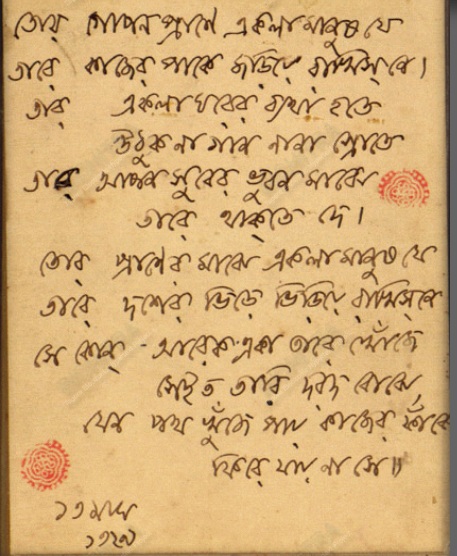 তোর গোপন প্রাণে একলা মানুষ যে
তারে কাজের পাকে জড়িয়ে রাখিস্ নে।
তার একলা ঘরের ব্যথা হতে
উঠুক না গান নানা স্রোতে
তার আপন সুরের ভুবন মাঝে
তারে থাক্‌তে দে।
তোর প্রাণের মাঝে একলা মানুষ যে
তারে দশের ভিড়ে ভিড়িয়ে রাখিস্ নে
সে কোন্ আরেক একা তারে খোঁজে
সেই ত তারি দরদ বোঝে
যেন পথ খুঁজে পায় কাজের ফাঁকে
ফিরে যায় না সে॥